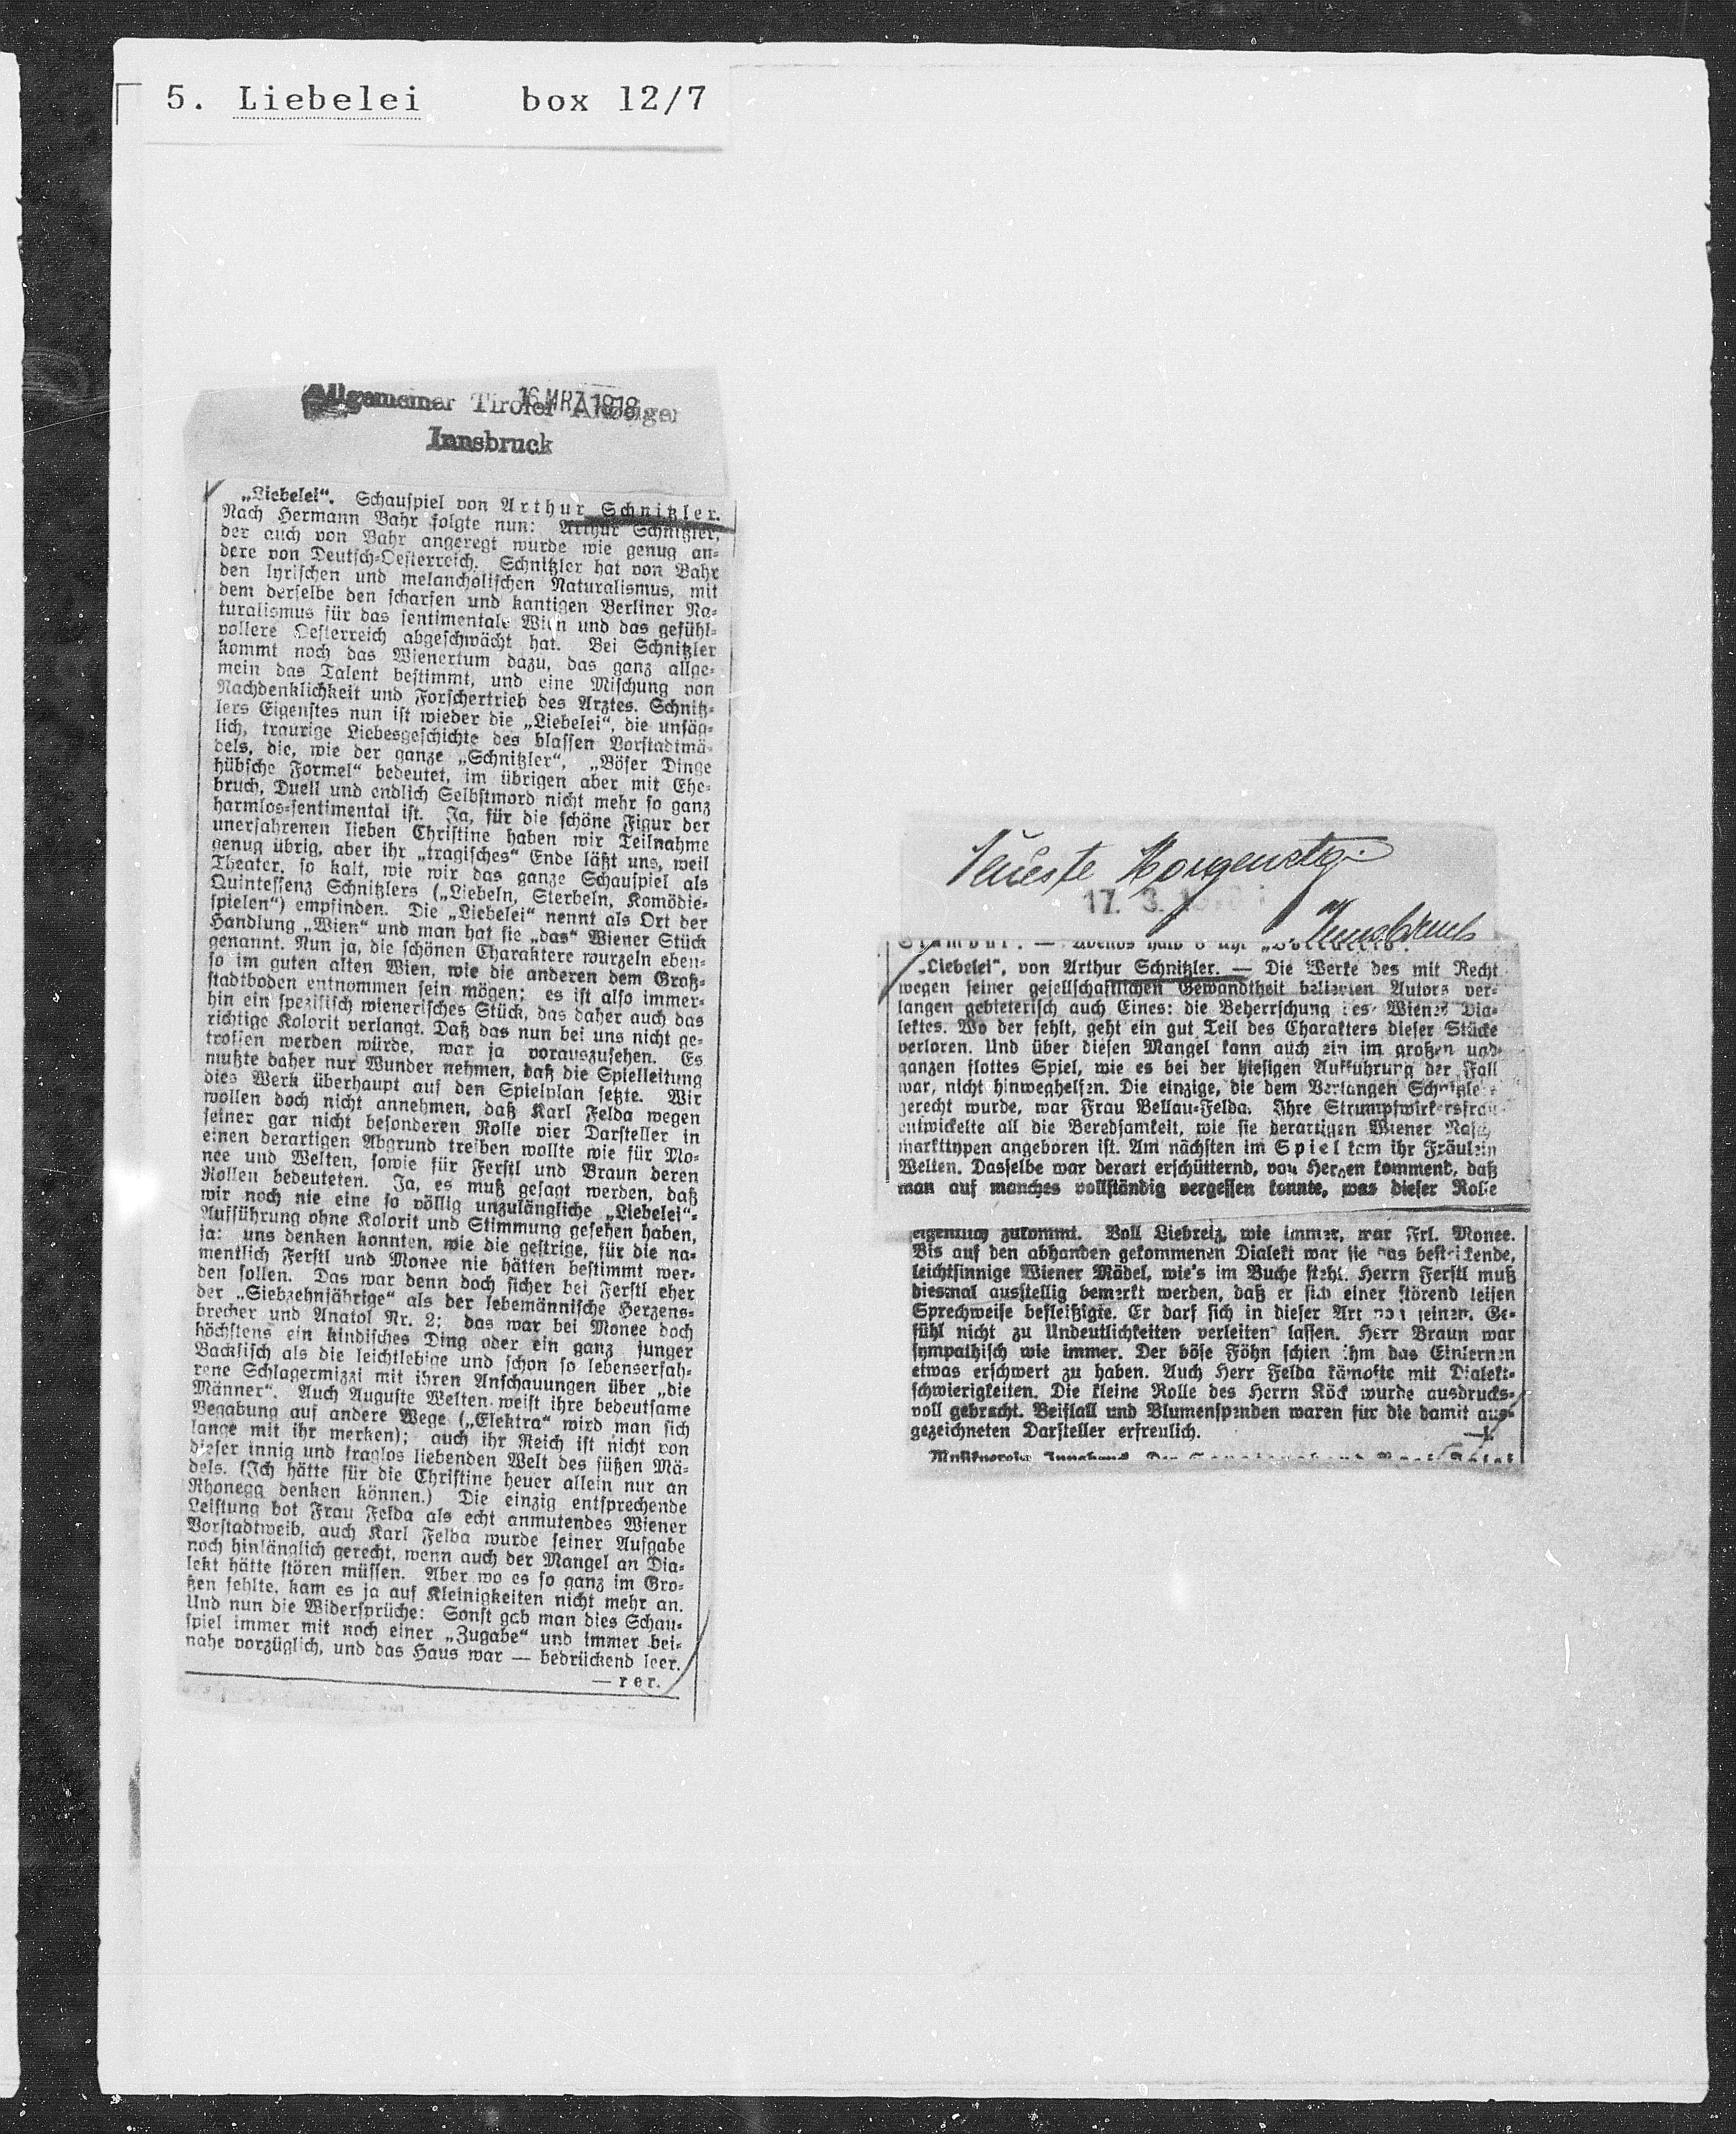 5. Liebelei box 12/7
Allgemeiner Tiroler Anzeiger
16. MRZ 1918
Innsbruck
„Liebelei“. Schauspiel von Arthur Schnitzler.
Nach Hermann Bahr folgte nun: Arthur Schnitzler,
der auch von Bahr angeregt wurde wie genug an-
dere von Deutsch-Oesterreich. Schnitzler hat von Bahr
den lyrischen und melancholischen Naturalismus, mit
dem derselbe den scharfen und kantigen Berliner Na-
turalismus für das sentimentale Wien und das gefühl-
vollere Oesterreich abgeschwächt hat. Bei Schnitzler
kommt noch das Wienertum dazu, das ganz allge-
mein das Talent bestimmt, und eine Mischung von
Nachdenklichkeit und Forschertrieb des Arztes. Schnitz-
lers Eigenstes nun ist wieder die „Liebelei“, die unsäg-
lich, traurige Liebesgeschichte des blassen Vorstadtmä-
dels, die, wie der ganze „Schnitzler“, „Böser Dinge
hübsche Formel“ bedeutet, im übrigen aber mit Ehe-
bruch, Duell und endlich Selbstmord nicht mehr so ganz
harmlos-sentimental ist. Ja, für die schöne Figur der
unerfahrenen lieben Christine haben wir Teilnahme
genug übrig, aber ihr „tragisches“ Ende läßt uns, weil
Theater, so kalt, wie wir das ganze Schauspiel als
Quintessenz Schnitzlers („Liebeln, Sterbeln, Komödie-
spielen“) empfinden. Die „Liebelei“ nennt als Ort der
Handlung „Wien“ und man hat sie „das“ Wiener Stück
genannt. Nun ja, die schönen Charaktere wurzeln eben-
so im guten alten Wien, wie die anderen dem Groß-
stadtboden entnommen sein mögen; es ist also immer-
hin ein spezifisch wienerisches Stück, das daher auch das
richtige Kolorit verlangt. Daß das nun bei uns nicht ge-
troffen werden würde, war ja vorauszusehen. Es
mußte daher nur Wunder nehmen, daß die Spielleitung
dies Werk überhaupt auf den Spielplan setzte. Wir
wollen doch nicht annehmen, daß Karl Felda wegen
seiner gar nicht besonderen Rolle vier Darsteller in
einen derartigen Abgrund treiben wollte wie für Mo-
nee und Welten, sowie für Ferstl und Braun deren
Rollen bedeuteten. Ja, es muß gesagt werden, daß
wir noch nie eine so völlig unzulängliche „Liebelei“-
Aufführung ohne Kolorit und Stimmung gesehen haben,
ja: uns denken konnten, wie die gestrige, für die na-
mentlich Ferstl und Monee nie hätten bestimmt wer-
den sollen. Das war denn doch sicher bei Ferstl eher
der „Siebzehnjährige“ als der lebemännische Herzens-
brecher und Anatol Nr. 2; das war bei Monee doch
höchstens ein kindisches Ding oder ein ganz junger
Backfisch als die leichtlebige und schon so lebenserfah-
rene Schlagermizzi mit ihren Anschauungen über „die
Männer“. Auch Auguste Welten weist ihre bedeutsame
Begabung auf andere Wege („Elektra“ wird man sich
lange mit ihr merken); auch ihr Reich ist nicht von
dieser innig und fraglos liebenden Welt des süßen Mä-
dels. (Ich hätte für die Christine heuer allein nur an
Rhonegg denken können.) Die einzig entsprechende
Leistung bot Frau Felda als echt anmutendes Wiener
Vorstadtweib, auch Karl Felda wurde seiner Aufgabe
noch hinlänglich gerecht, wenn auch der Mangel an Dia-
lekt hätte stören müssen. Aber wo es so ganz im Gro-
ßen fehlte, kam es ja auf Kleinigkeiten nicht mehr an.
Und nun die Widersprüche: Sonst gab man dies Schau-
spiel immer mit noch einer „Zugabe“ und immer bei-
nahe vorzüglich, und das Haus war — bedrückend leer.
—rer.
Neueste Morgenztg.
17. 3.
Innsbruck
„Liebelei“, von Arthur Schnitzler. — Die Werke des mit Recht
wegen seiner gesellschaftlichen Gewandtheit beliebten Autors ver-
langen gebieterisch auch Eines: die Beherrschung des Wiener Dia-
lektes. Wo der fehlt, geht ein gut Teil des Charakters dieser Stücke
verloren. Und über diesen Mangel kann auch ein im großen und
ganzen flottes Spiel, wie es bei der hiesigen Aufführung der Fall
war, nicht hinweghelfen. Die einzige, die dem Verlangen Schnitzlers
gerecht wurde, war Frau Bellau-Felda. Ihre Strumpfwirkersfrau
entwickelte all die Beredsamkeit, wie sie derartigen Wiener Nasch-
markttypen angeboren ist. Am nächsten im Spiel kam ihr Fräulein
Welten. Dasselbe war derart erschütternd, von Herzen kommend, daß
man auf manches vollständig vergessen konnte, was dieser Rolle
eigentlich zukommt. Voll Liebreiz, wie immer, war Frl. Monee.
Bis auf den abhanden gekommenen Dialekt war sie das bestrickende,
leichtsinnige Wiener Mädel, wie's im Buche steht. Herrn Ferstl muß
diesmal ausstellig bemerkt werden, daß er sich einer störend leisen
Sprechweise befleißigte. Er darf sich in dieser Art von seinem Ge-
fühl nicht zu Undeutlichkeiten verleiten lassen. Herr Braun war
sympathisch wie immer. Der böse Föhn schien ihm das Einlernen
etwas erschwert zu haben. Auch Herr Felda kämpfte mit Dialekt-
schwierigkeiten. Die kleine Rolle des Herrn Köck wurde ausdrucks-
voll gebracht. Beifall und Blumenspenden waren für die damit aus-
gezeichneten Darsteller erfreulich.